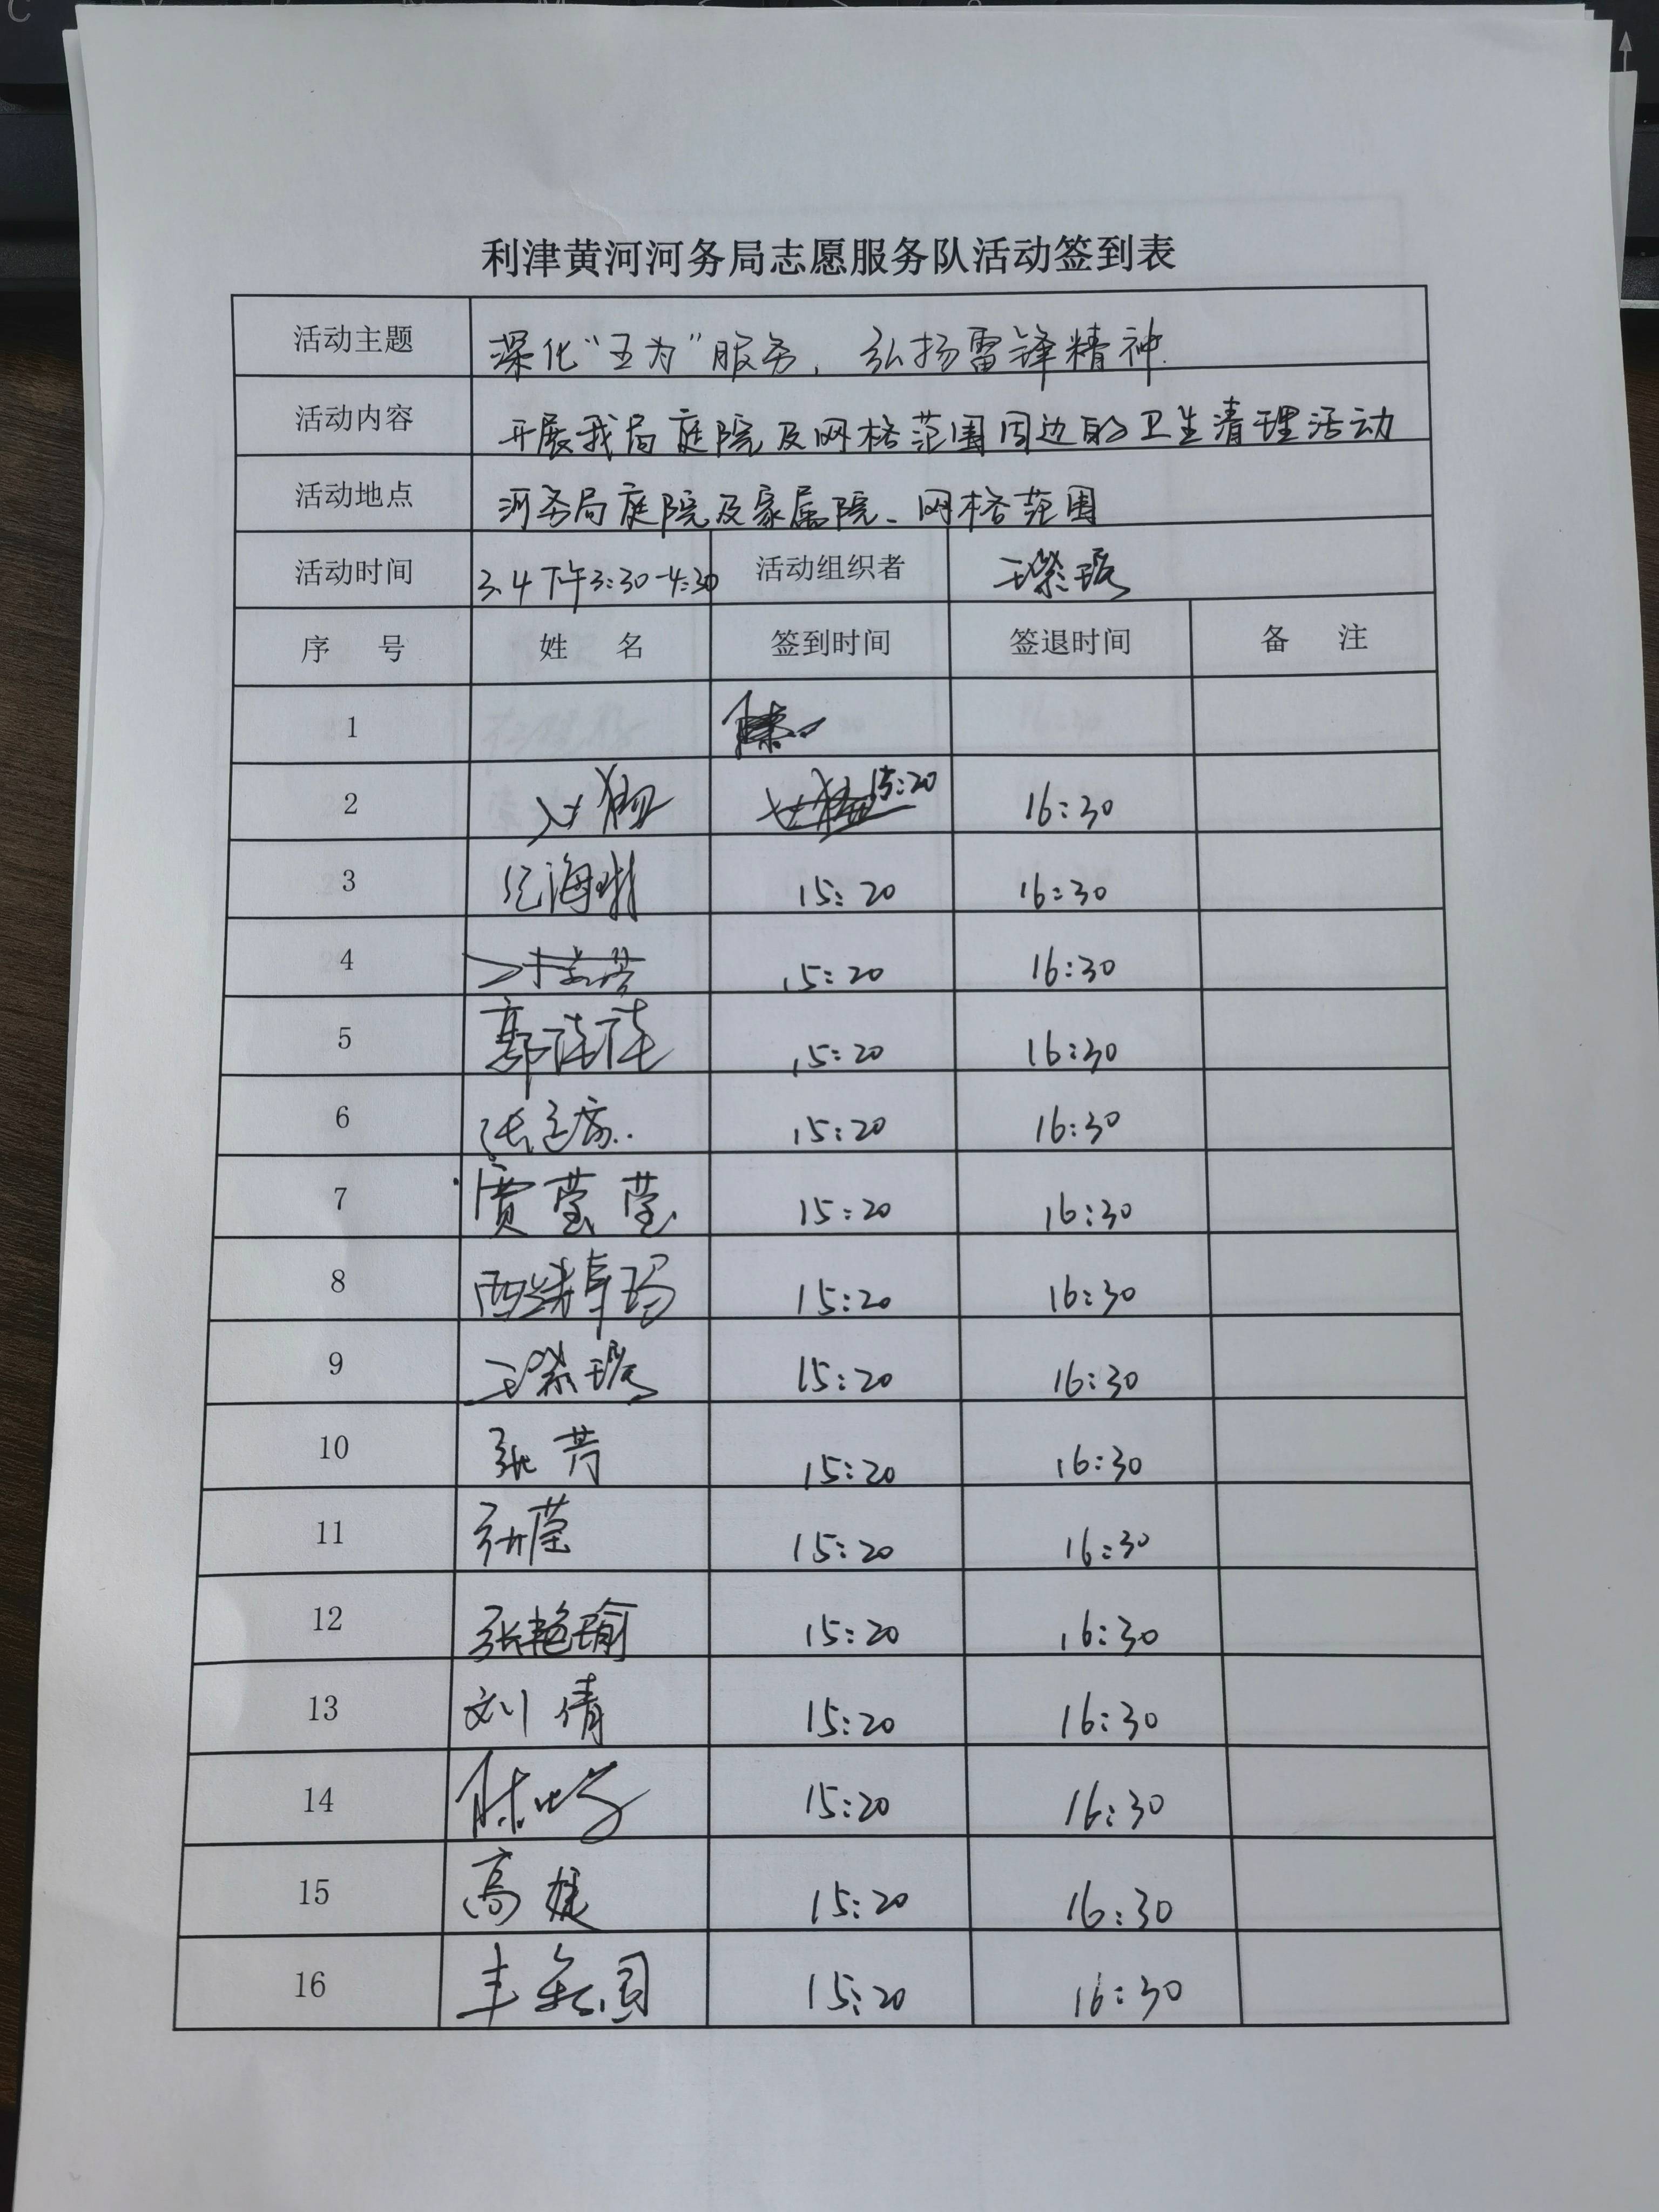 利津黄河河务局志愿服务队活动签到表
活动主题 深化“五为”服务，弘扬雷锋精神.
活动内容 开展我局庭院及网格范围周边的卫生清理活动
活动地点 河务局庭院及家属院、网格范围
活动时间 3.4下午3:30-4:30 活动组织者
序 号 姓 名 签到时间 签退时间 备 注
1
2 15:20 16:30
3 15:20 16:30
4 15:20 16:30
5 15:20 16:30
6 15:20 16:30
7 贾莹莹 15:20 16:30
8 卓玛 15:20 16:30
9 15:20 16:30
10 张芳 15:20 16:30
11 15:20 16:30
12 张艳瑜 15:20 16:30
13 刘倩 15:20 16:30
14 15:20 16:30
15 高婕 15:20 16:30
16 15:20 16:30